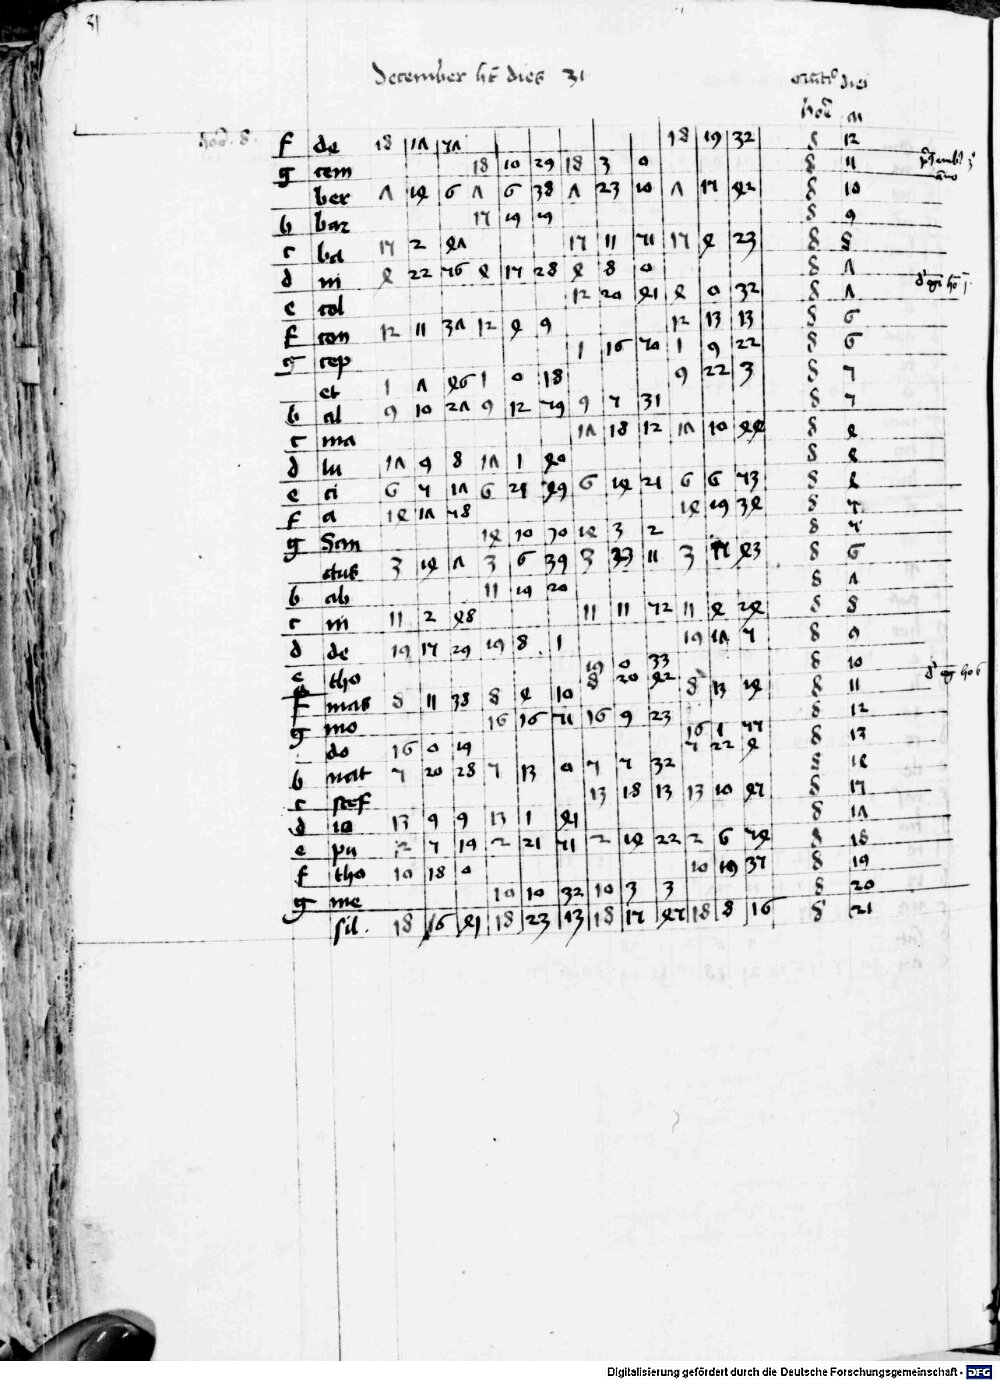 31
december ht dies 31
dies
f de 18 17 57 18 19 32 8 12
g cem 18 10 29 18 3 0 8 11
ber 7 14 6 7 6 38 7 23 10 7 15 42 8 10
b bar 15 19 19 8 9
c ba 15 2 47 15 11 51 15 4 23 8 8
d ni 4 22 56 4 15 28 4 8 0 8 7
e col 12 20 41 4 0 32 8 7
f con 12 11 37 12 4 9 12 13 13 8 6
g cep 1 16 50 1 9 22 8 6
et 1 7 46 1 0 18 9 22 3 8 5
b al 9 10 27 9 12 59 9 5 31 8 5
c ma 17 18 12 17 10 44 8 4
d lu 17 9 8 17 1 40 8 4
e ci 6 5 17 6 21 49 6 14 21 6 6 53 8 4
f a 14 17 58 14 19 34 8 5
g San 14 10 30 14 3 2 8 5
ctus 3 14 7 3 6 39 3 23 11 3 15 43 8 6
b ab 11 19 20 8 7
c in 11 2 48 11 11 52 11 4 24 8 8
d de 19 15 29 19 8 1 19 17 5 8 9
e tho 19 0 33 8 10
f mas 8 11 38 8 4 10 8 20 42 8 13 14 8 11
g mo 16 16 51 16 9 23 16 1 55 8 12
do 16 0 19 5 22 4 8 13
b nat 5 20 28 5 13 0 5 5 32 8 14
c stef 13 18 13 13 10 45 8 15
d io 13 9 9 13 1 41 8 17
e pu 2 5 19 2 21 51 2 14 22 2 6 54 8 18
f tho 10 18 0 10 19 35 8 19
g me 10 10 32 10 3 3 8 20
sil. 18 16 41 18 23 13 18 15 45 18 8 16 8 21
Digitalisierung gefördert durch die Deutsche Forschungsgemeinschaft - DFG